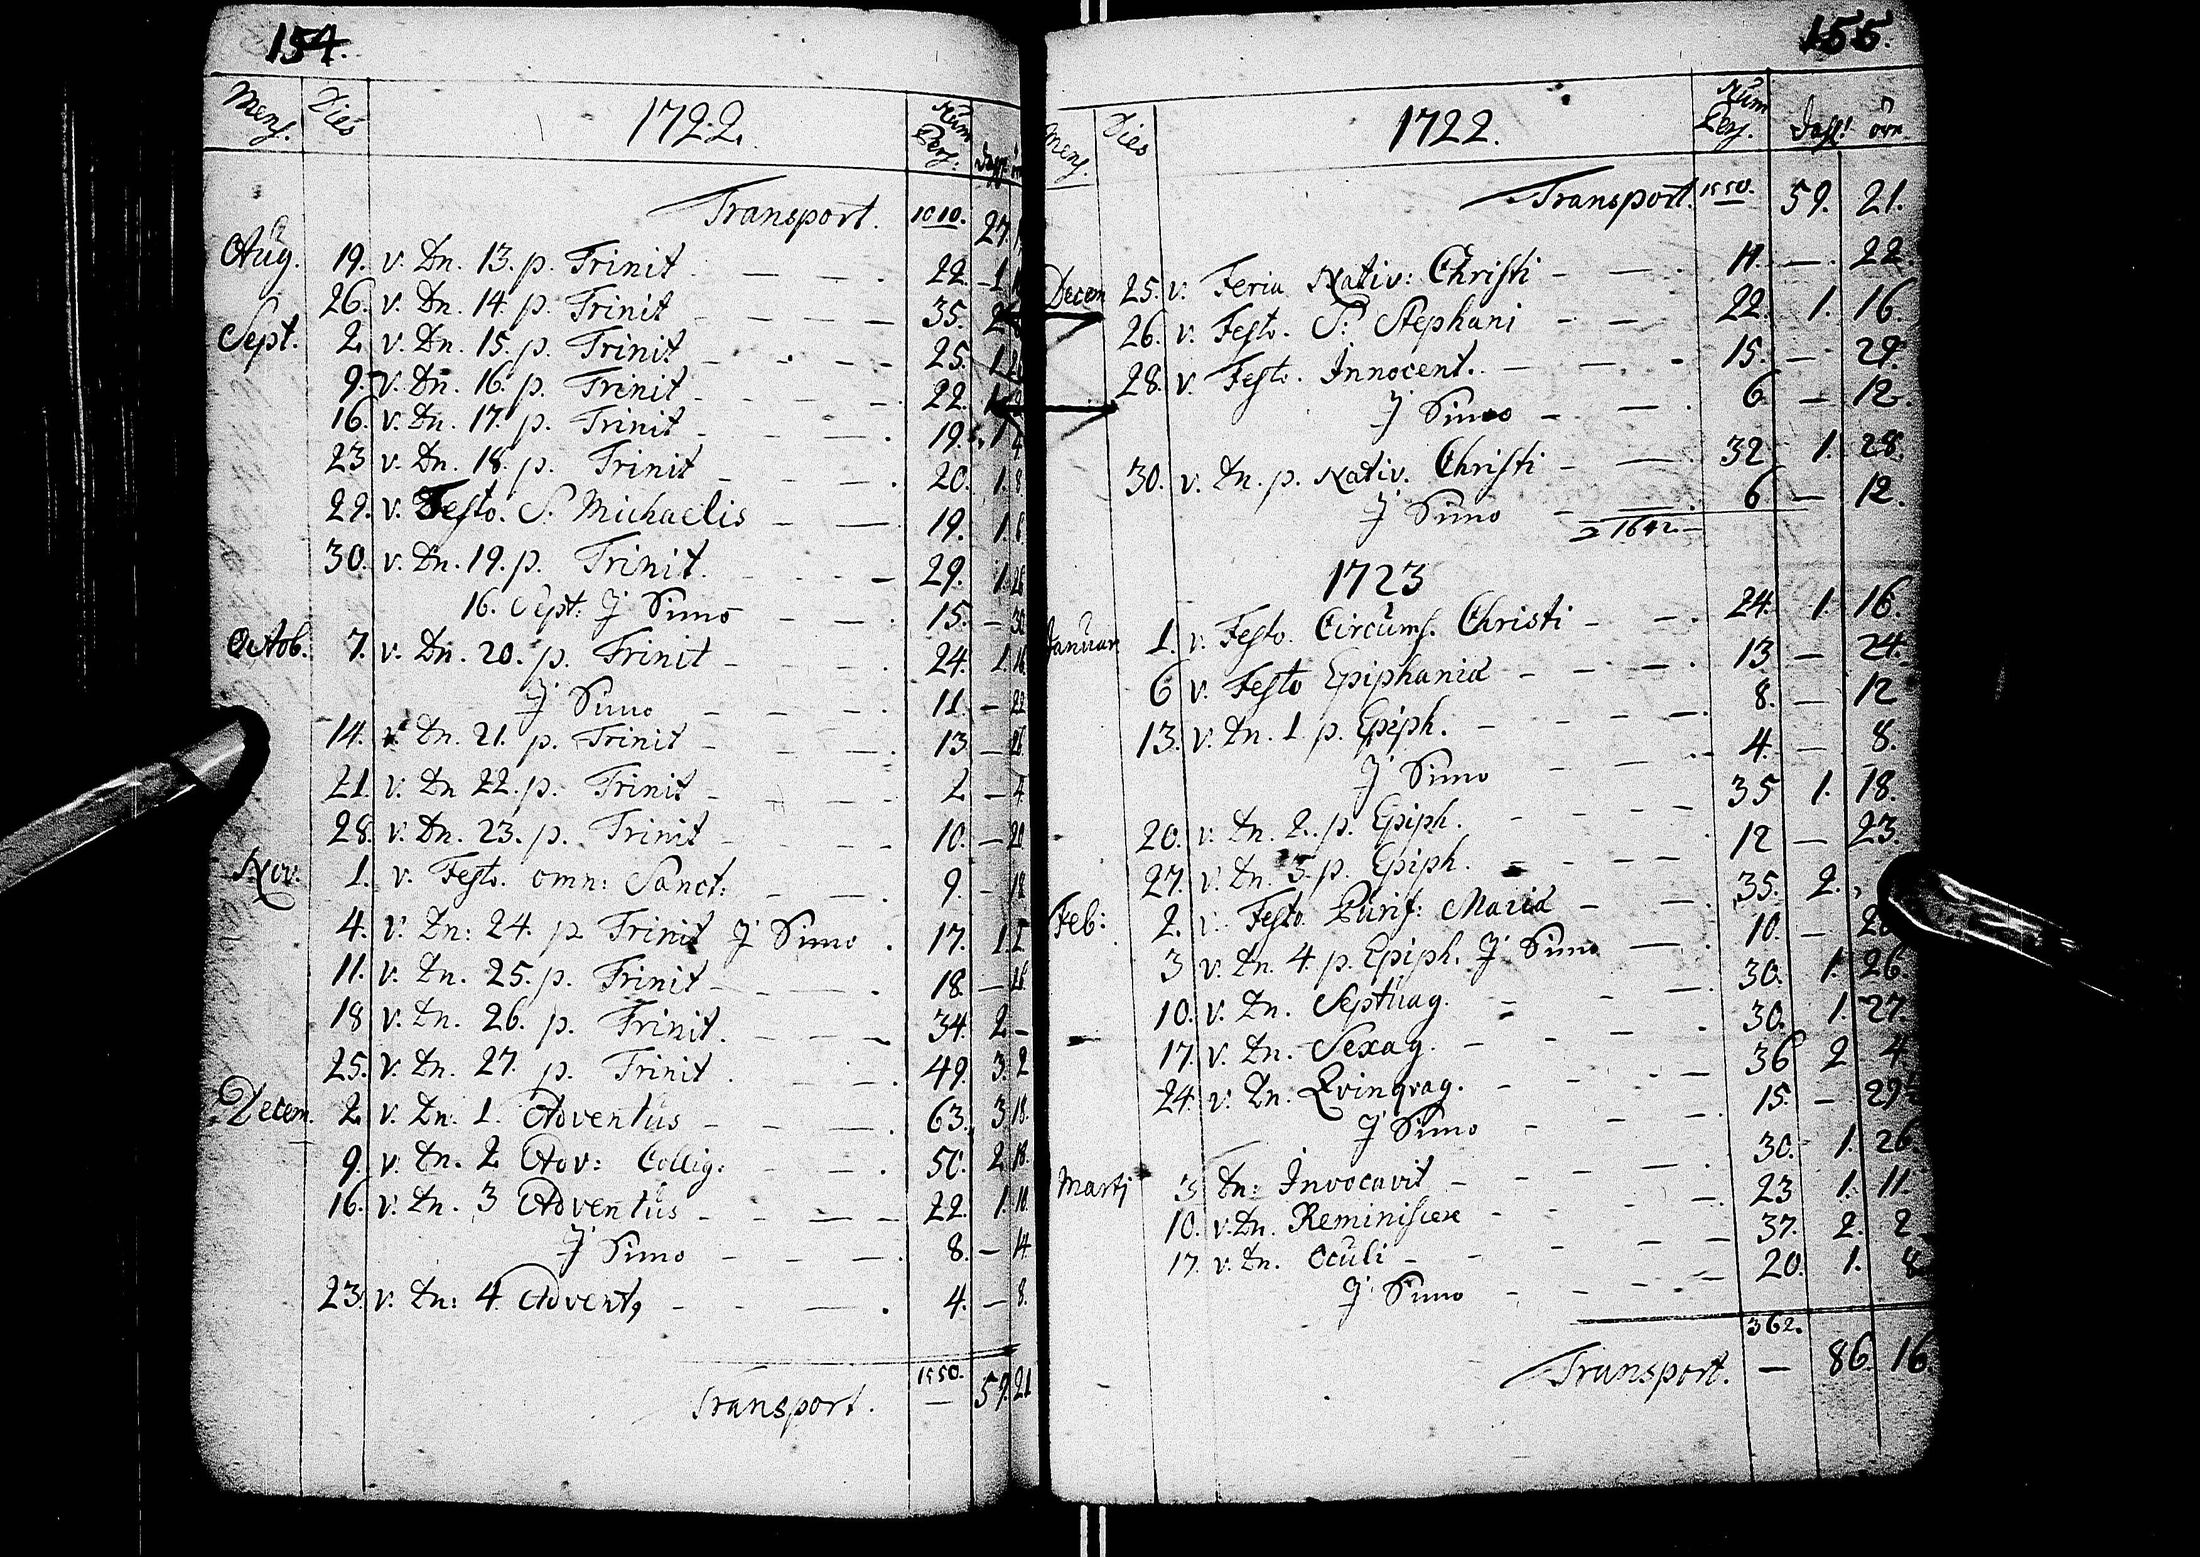 154.
Mens. Dies 1722. Num Pers:
Transport. 1010. 27
Aug. 19. v. Dn. 13. p. Trinit 22 1
26. v. Dn. 14. p. Trinit 35.
Sept. 2 v. Dn. 15. p. Trinit 25. 1
9. v. Dn. 16. p. Trinit 22.
16. v. Dn. 17. p. Trinit 19. 1
23 v. Dn. 18. p. Trinit 20. 1. 8.
29. v. Festo. S. Michaelis 19. 1. 6
30. v. Dn. 19. p. Trinit. 29. 1. 26
16. Sept: J Simo 15. — 30
Octob. 7. v. Dn. 20. p. Trinit 24. 1. 16
J Simo 11. — 22
14. v. Dn. 21. p. Trinit 13 — 26
21. v. Dn 22. p. Trinit 2 — 4.
28. v. Dn. 23. p. Trinit 10. — 20
Nov. 1. v. Festo. omn: Sanct: 9. — 18
4. v. Dn: 24. p Trinit J Simo . 17. 1. 2
11. v. Dn. 25. p. Trinit 18. —
18 v. Dn. 26. p. Trinit. 34. 2 —
25. v. Dn. 27. p. Trinit 49. 3. 2
Decem. 2 v. Dn: 1. Adventus 63. 3. 18.
9. v. Dn. 2 Adv: Collig: 50. 2 18.
16. v. Dn. 3 Adventus 22. 1. 10.
J Simo 8. — 14
23. v. Dn: 4. Advent, 4. — 8.
Transport. 1550. 59. 21
155.
Mens. Dies 1722. Num Pers. öre.
Transport. 1550. 59. 21.
Decem 25. v. Feria Nativ: Christi 11. — 22
26. v. Festo. S: Stephani 22. 1. 16.
28. v. Festo. Innocent. 15. — 29.
J Simo 6 — 12.
30. v. Dn. p. Nativ. Christi 32 1. 28.
J Simo 6 — 12.
1642.
1723
Januar 1. v. Festo. Circums. Christi 24. 1. 16.
6 v. Festo Epiphaniæ 13 — 24.
13. v. Dn. 1. p. Epiph. 8. — 12
J Simo 4. — 8.
20. v. Dn. 2. p. Epiph. 35 1. 18.
27. v. Dn. 3. p. Epiph. 12 — 23.
Feb: 2. v. Festo Purif: Mariæ 35. 2.
3 v. Dn. 4. p. Epiph. J Simo 10. —
10. v. Dn. Septuag. 30. 1. 26
17. v. Dn. Sexag. 30. 1. 27.
24. v. Dn: Qvinqvag. 36 2 4
J Simo 15. —
Martj 3 Dn: Invocavit 30. 1. 26
10. v. Dn. Reminiscere 23 1. 11.
17. v. Dn. Oculi 37. 2. 2
J Simo 20. 1. 8
362.
Transport. — 86. 16.